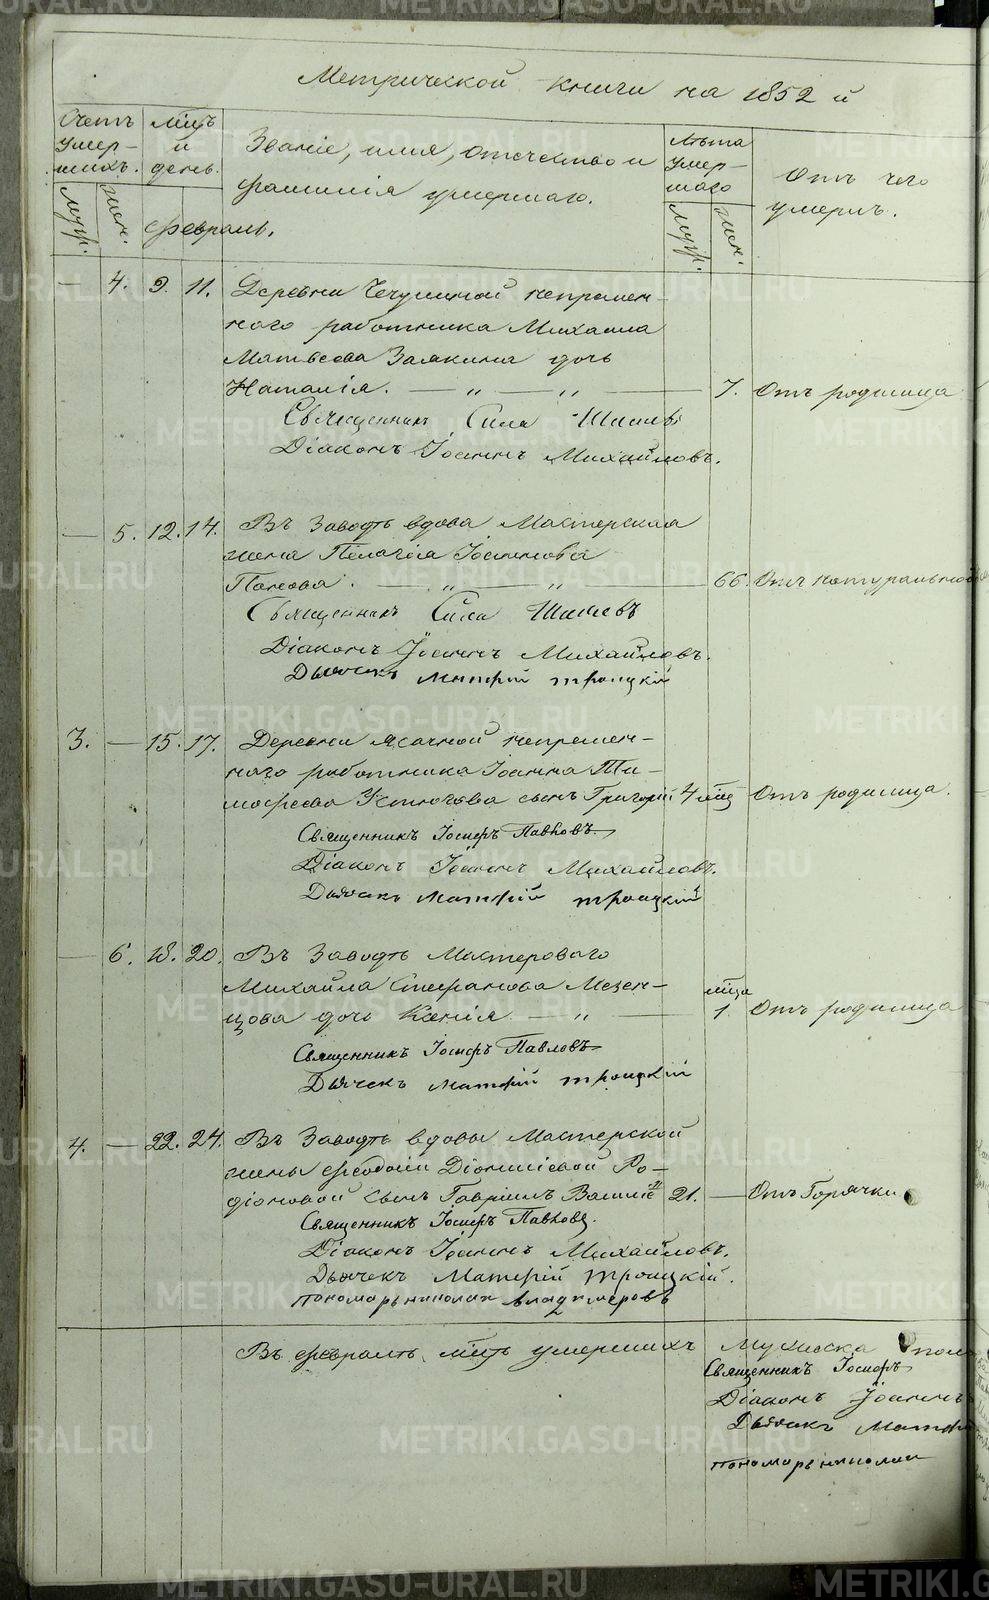 Метрической книги на 1852 й
Счетъ умер- шихъ.
Мцъ и день.
Званіе, имя, отечество и фамилія умершаго.
Лѣта умер- шаго
Отъ чего умеръ.
Муж. Жен.
Февраль.
Муж. Жен.
— 4. 9. 11. Деревни непремен-
наго работника Михаила
Матвеева дочь
Наталія. — „ — „ — 7. Отъ родимца
Священникъ Сила
Діаконъ Іоаннъ Михайловъ.
— 5. 12. 14. Въ Заводѣ вдова Мастерская
жена Пелагіа Іоаннова
Панова. — „ — „ — 66. Отъ натуральной
Священникъ Сила
Діаконъ Іоаннъ Михайловъ.
Дьячекъ Матфій Троицкій
3. — 15. 17. Деревни Ясачной непремен-
наго работника Іоанна Ти-
мофеева сынъ Григорій 4 мцъ Отъ родимца.
Священникъ Іосифъ Павловъ
Діаконъ Іоаннъ Михайловъ.
Дьячекъ Матфій Троицкій
— 6. 18. 20. Въ Заводѣ Мастероваго
Михайла Стефанова Мезен-
цова дочь Ксенія — „ — мца 1. Отъ родимца
Священникъ Іосифъ Павловъ
Дьячекъ Матфій Троицкій
4. — 22. 24. Въ Заводѣ вдовы Мастерской
жены Феодосіи Діонисіевой Ро-
діоновой сынъ Гавріилъ 21. — Отъ Горячки
Священникъ Іосифъ Павловъ.
Діаконъ Іоаннъ Михайловъ.
Дьячекъ Матфій Троицкій.
Пономарь Николай Владимеровъ
Въ Февралѣ мцѣ умершихъ Мужеска пола
Священникъ Іосифъ
Діаконъ Іоаннъ
Дьячекъ Матфі
Пономарь Николай
METRIKI.GASO-URAL.RU